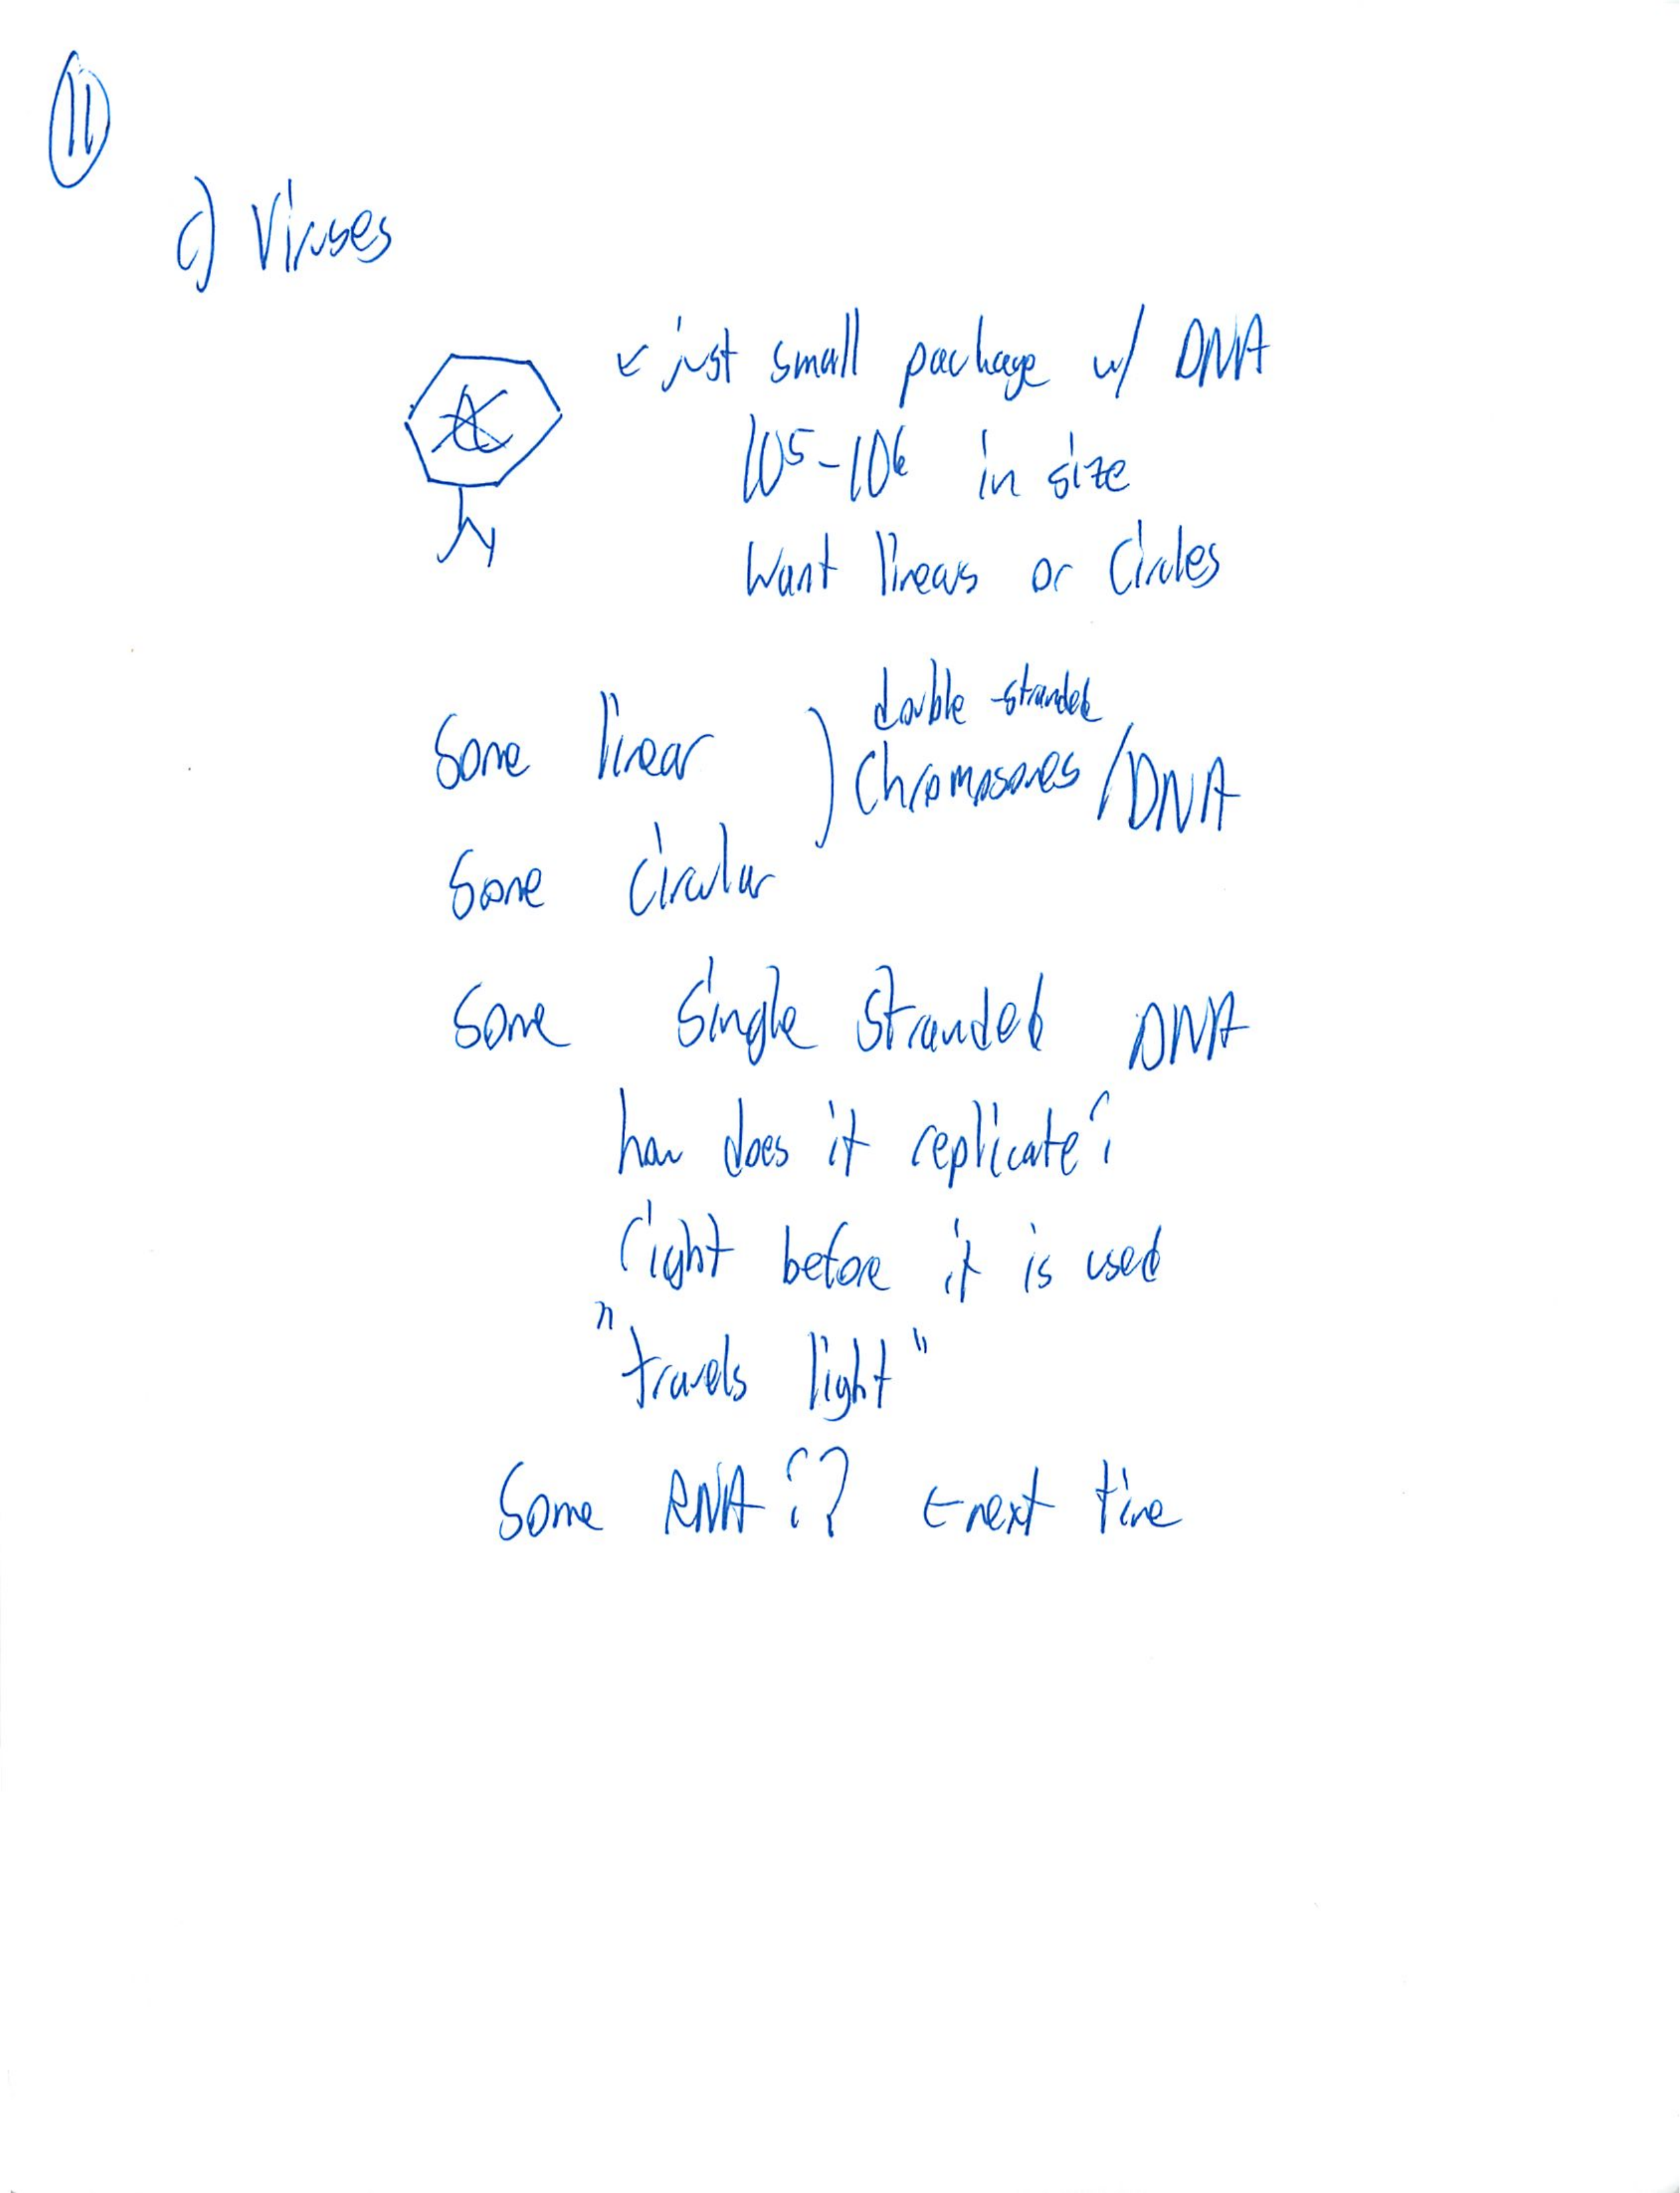 11
c) Viruses
← just small package w/ DNA
10^5-10^6 in size
Want linears or Circles
double-stranded
Some linear ) Chromosomes/DNA
Some Circular
Some Single Stranded DNA
how does it replicate?
right before it is used
"travels light"
Some RNA ?? ← next time